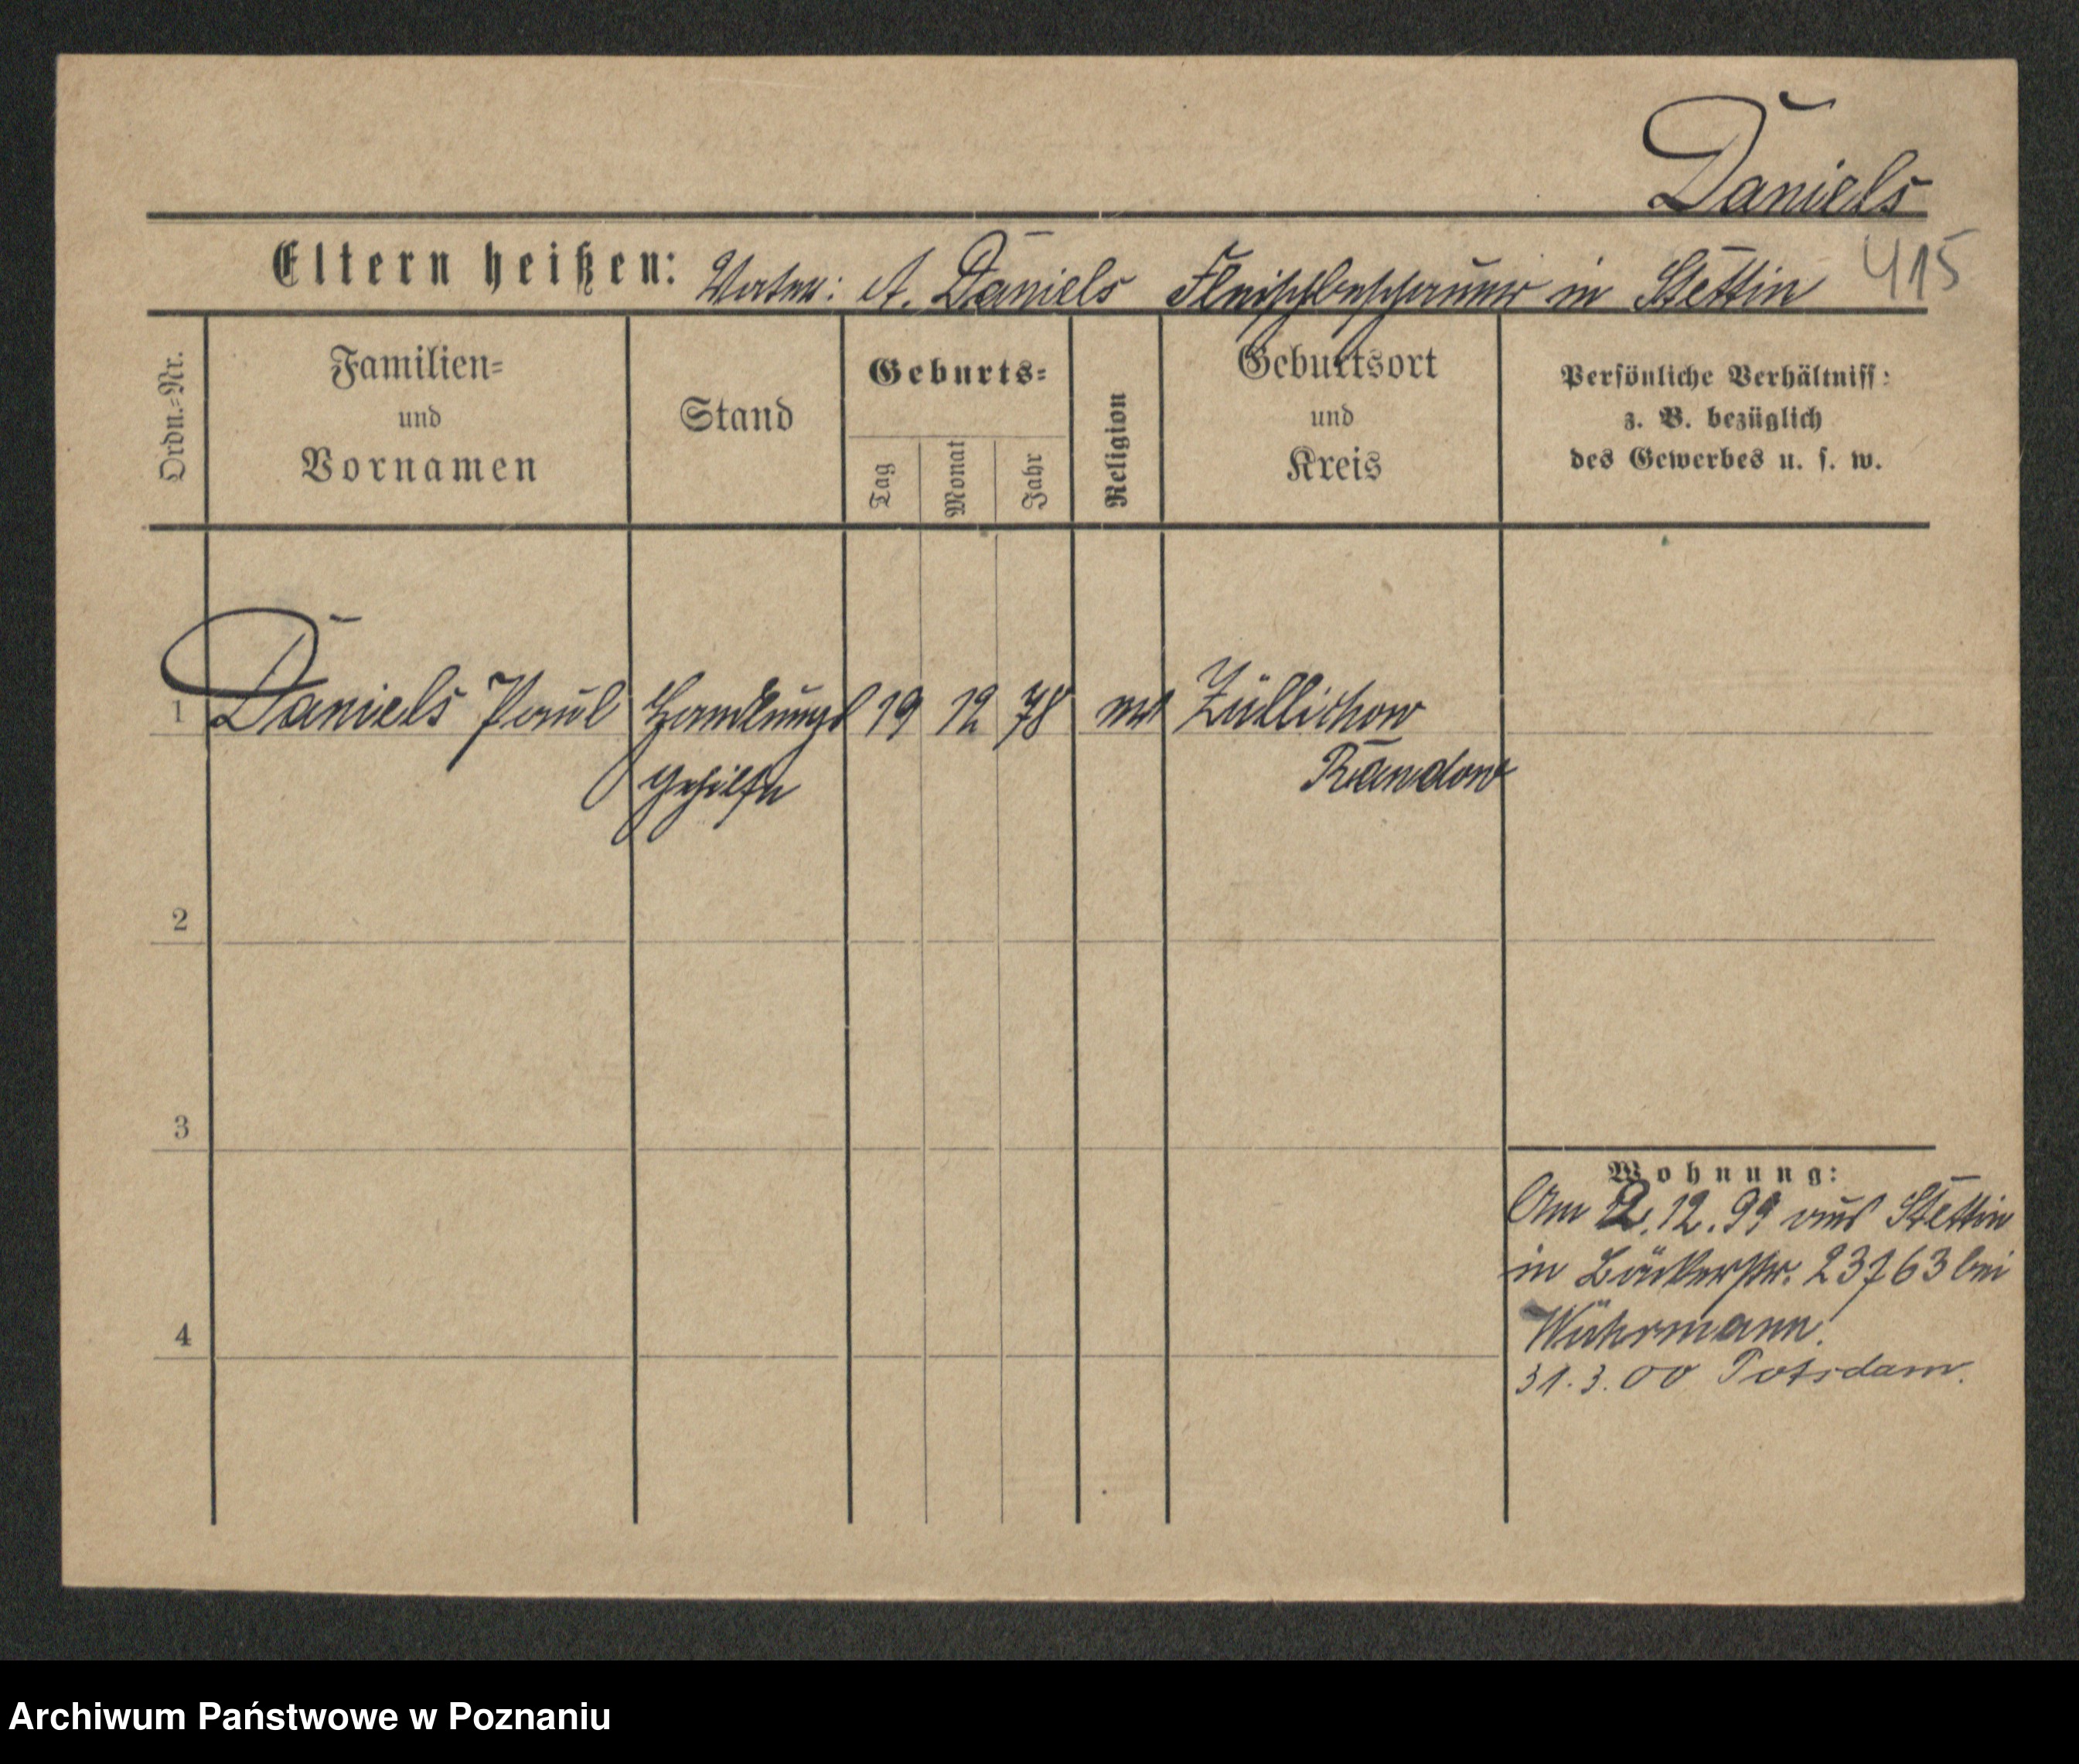 Daniels
Eltern heißen: Vater: A. Daniels Fleischbeschauer in Stettin 415
Ordn.-Nr.
Familien-
und
Vornamen
Stand
Geburts-
Tag
Monat
Jahr
Religion
Geburtsort
und
Kreis
Persönliche Verhältniss:
z. B. bezüglich
des Gewerbes u. s. w.
1 Daniels Paul Handlungs 19 12 78 Züllichow
gehilfe Randow
2
3
4
Wohnung:
Am 2.12.99 aus Stettin
in Bäckerstr. 23 763 bei
Wührmann.
31.3.00 Potsdam.
Archiwum Państwowe w Poznaniu